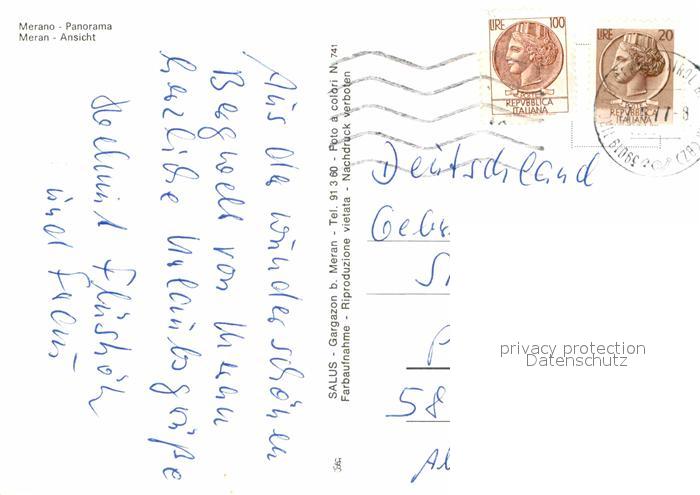 Merano - Panorama
Meran - Ansicht
Aus der wunderschönen
Bergwelt von Meran
herzliche Urlaubsgrüße
Helmut
und Frau
SALUS - Gargazon b. Meran - Tel. 91 3 60 - Foto a colori N. 741
Farbaufnahme - Riproduzione vietata - Nachdruck verboten
LIRE 100
REPVBBLICA
ITALIANA
LIRE 20
REPVBBLICA
ITALIANA
39019
(BZ)
Deutschland
Gebr
58
privacy protection
Datenschutz